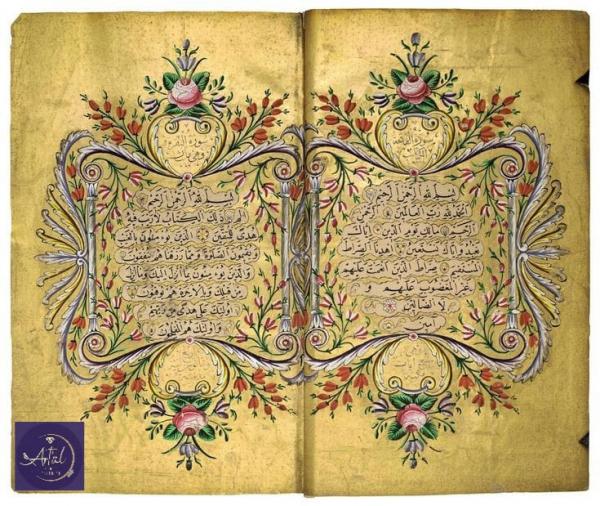 سورة الفاتحة
بِسْمِ اللَّهِ الرَّحْمٰنِ الرَّحِيمِ
اَلْحَمْدُ لِلَّهِ رَبِّ الْعَالَمِينَ الرَّحْمٰنِ
الرَّحِيمِ مَالِكِ يَوْمِ الدِّينِ اِيَّاكَ
نَعْبُدُ وَاِيَّاكَ نَسْتَعِينُ اِهْدِنَا الصِّرَاطَ
الْمُسْتَقِيمَ صِرَاطَ الَّذِينَ اَنْعَمْتَ عَلَيْهِمْ
غَيْرِ الْمَغْضُوبِ عَلَيْهِمْ وَ
لَا الضَّالِّينَ
اٰمِين
سورة البقرة
بِسْمِ اللَّهِ الرَّحْمٰنِ الرَّحِيمِ
الم ذٰلِكَ الْكِتَابُ لَا رَيْبَ فِيهِ
هُدًى لِلْمُتَّقِينَ الَّذِينَ يُؤْمِنُونَ بِالْغَيْبِ
وَيُقِيمُونَ الصَّلٰوةَ وَمِمَّا رَزَقْنَاهُمْ يُنْفِقُونَ
وَالَّذِينَ يُؤْمِنُونَ بِمَا اُنْزِلَ اِلَيْكَ وَمَا اُنْزِلَ
مِنْ قَبْلِكَ وَبِالْاٰخِرَةِ هُمْ يُوقِنُونَ
اُولٰئِكَ عَلٰى هُدًى مِنْ رَبِّهِمْ
وَاُولٰئِكَ هُمُ الْمُفْلِحُونَ
Artal